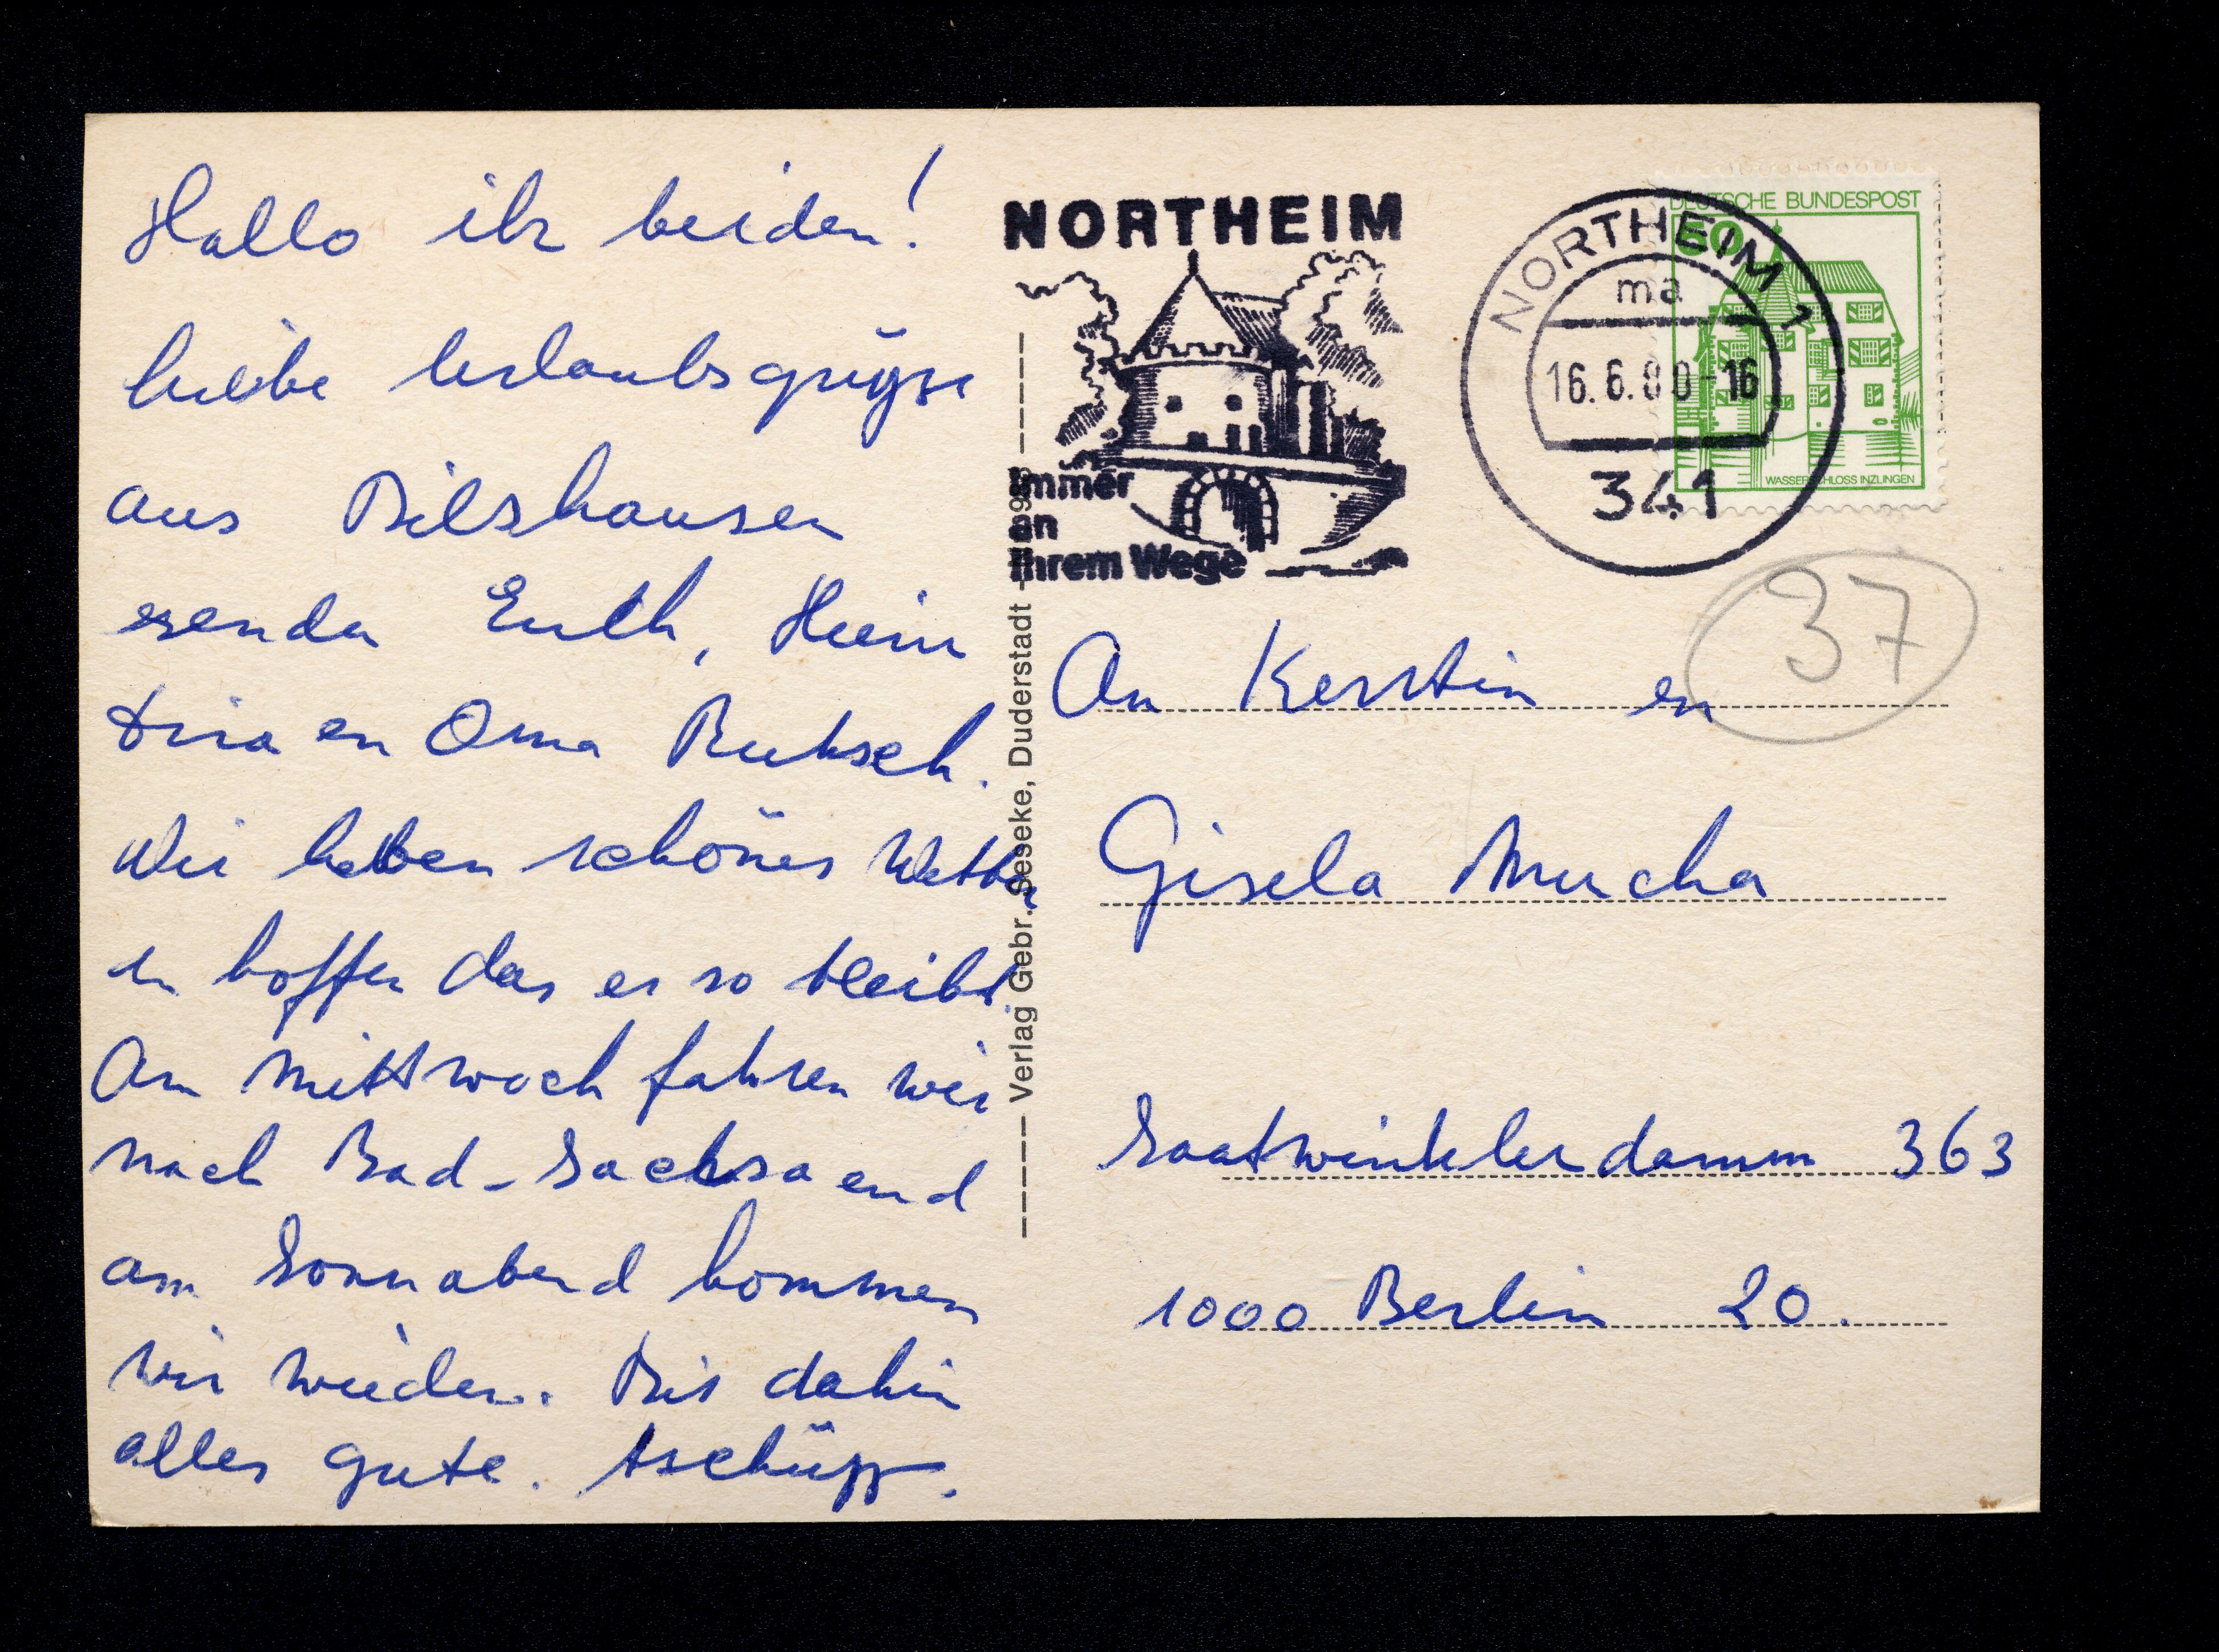 Hallo ihr beiden!
liebe Urlaubsgrüße
aus Bilshausen
senden Euch, Hein
Oma
Wir haben schönes Wetter
en hoffen das es so bleibt.
Am Mittwoch fahren wir
nach Bad-Sachsa und
am Sonnabend kommen
wir wieder. Bis dahin
alles gute. tschüß.
Verlag Gebr. Seseke, Duderstadt
NORTHEIM
immer
an
Ihrem Wege
NORTHEIM 1
ma
16.6.80-16
341
DEUTSCHE BUNDESPOST
WASSERSCHLOSS INZLINGEN
37
An Kerstin en
Gisela Mucha
Saatwinklerdamm 363
1000 Berlin 20.